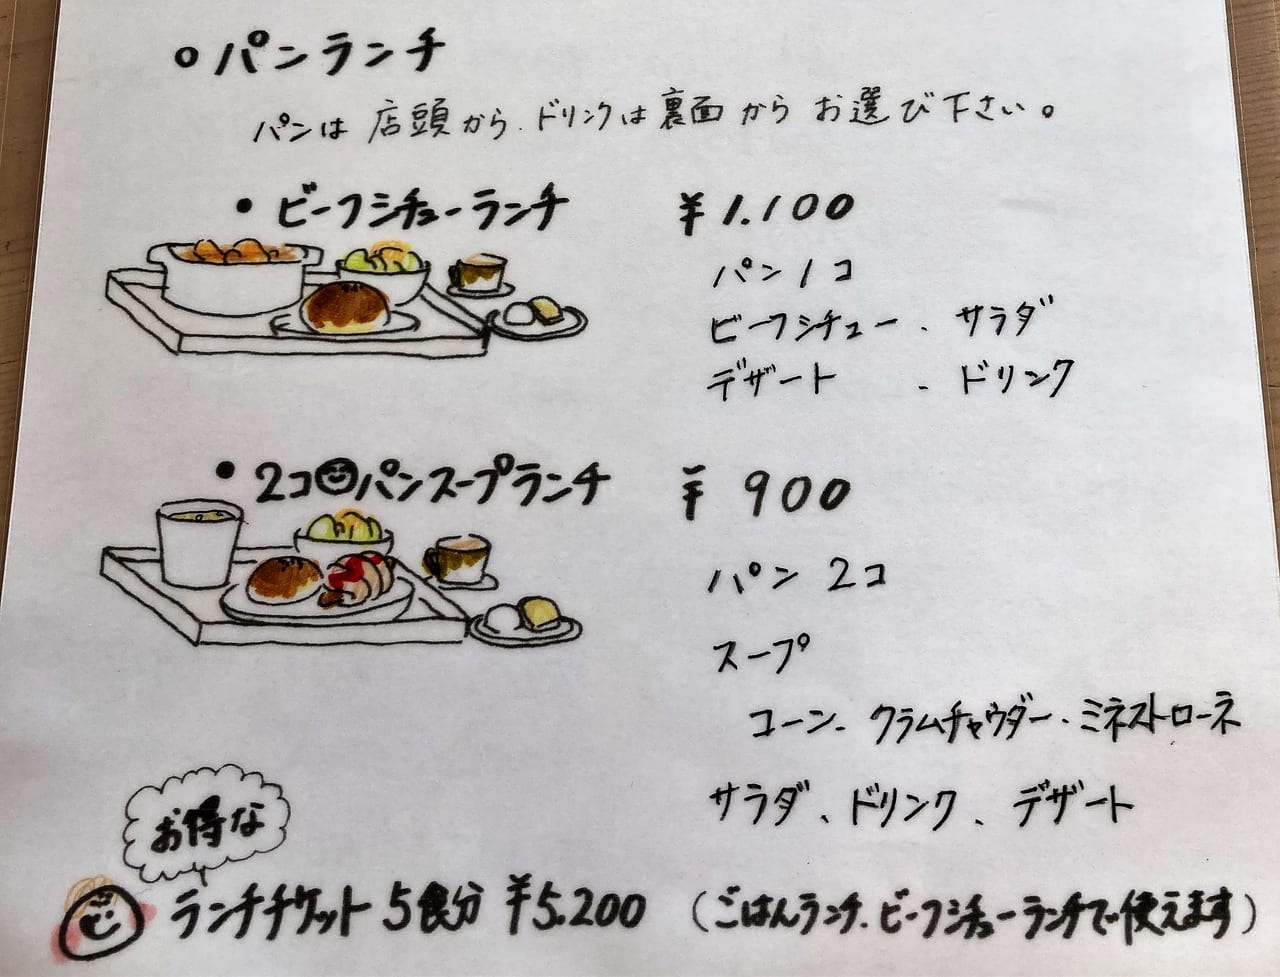 ○パンランチ
パンは店頭から、ドリンクは裏面からお選び下さい。
・ビーフシチューランチ ¥1.100
パン1コ
ビーフシチュー、サラダ
デザート 、ドリンク
・2コパンスープランチ ¥900
パン2コ
スープ
コーン、クラムチャウダー、ミネストローネ
サラダ、ドリンク、デザート
お得な
ランチチケット5食分 ¥5.200 (ごはんランチ、ビーフシチューランチで使えます)